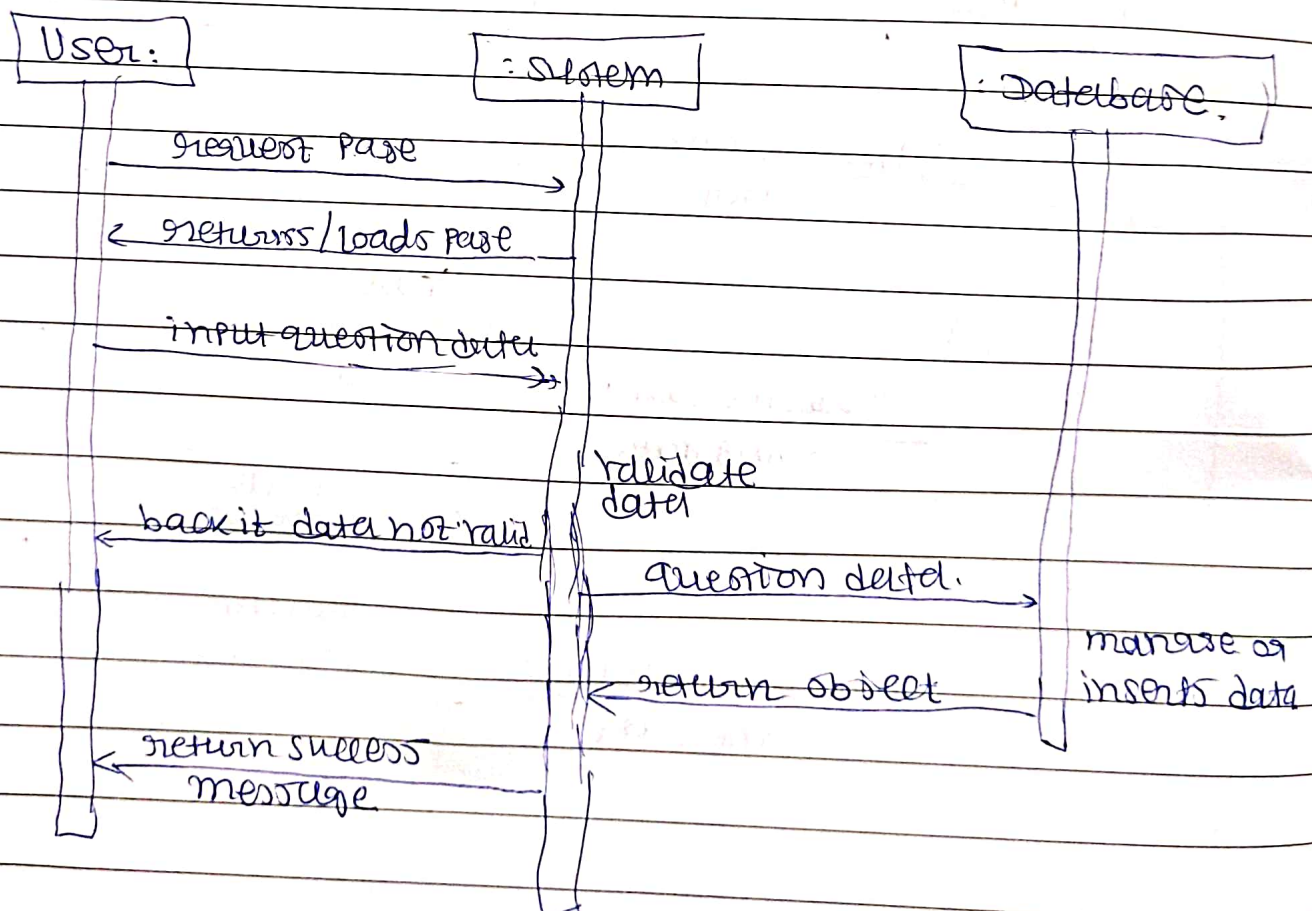 User:
: System
: Database.
request page
returns/loads page
input question data
validate
data
back if data not valid
question data.
manage or
inserts data
return object
return success
message